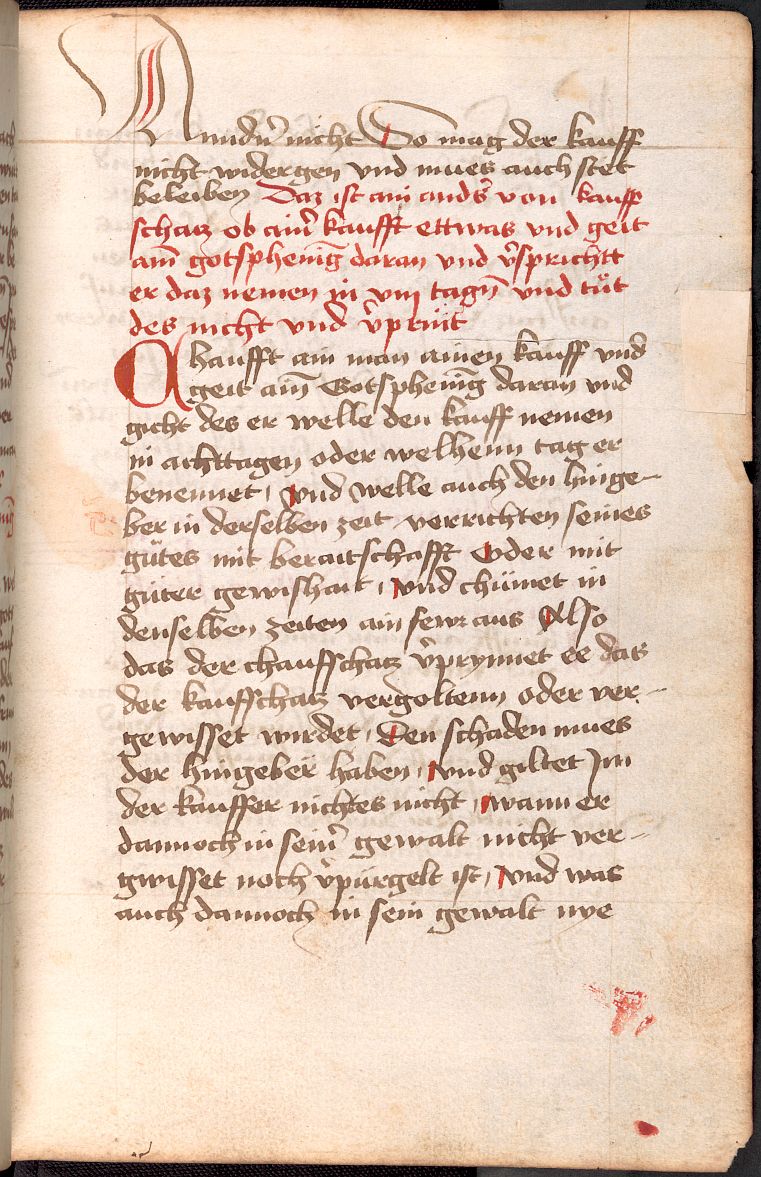 Annders nicht So mag der kauff
nicht widergen vnd mues auch stet
beleiben Daz ist ain anders von kauff
schacz ob ainer kaufft ettwas vnd geit
ain gotsphening daran vnd v̓sprichtt
er daz nemen in viij tagñ vnd tůt
des nicht vnd v̓print
Chaufft ain man ainen kauff vnd
geit ain̄ Gotsphening daran vnd
gicht des er welle den kauff nemen
in achttagen oder welhenn tag er
benennet, vnd welle auch den hinge-
ber in derselben zeit verrichten seines
gůtes mit beraitschafft Oder mit
gůter gewishait, vnd chůmet in
denselben zeiten ain fewr aus Also
das der chauffschacz v̓prynnet ee das
der kauffschacz vergoltenn oder ver-
gewisset wirdet, Den schaden mues
der hingeber haben, vnd giltet Im
der kauffer nichtes nicht, wann er
dannoch in sein̓ gewalt nicht ver-
gwisset noch v̓pürgelt ist, vnd was
auch dannoch in sein gewalt nye